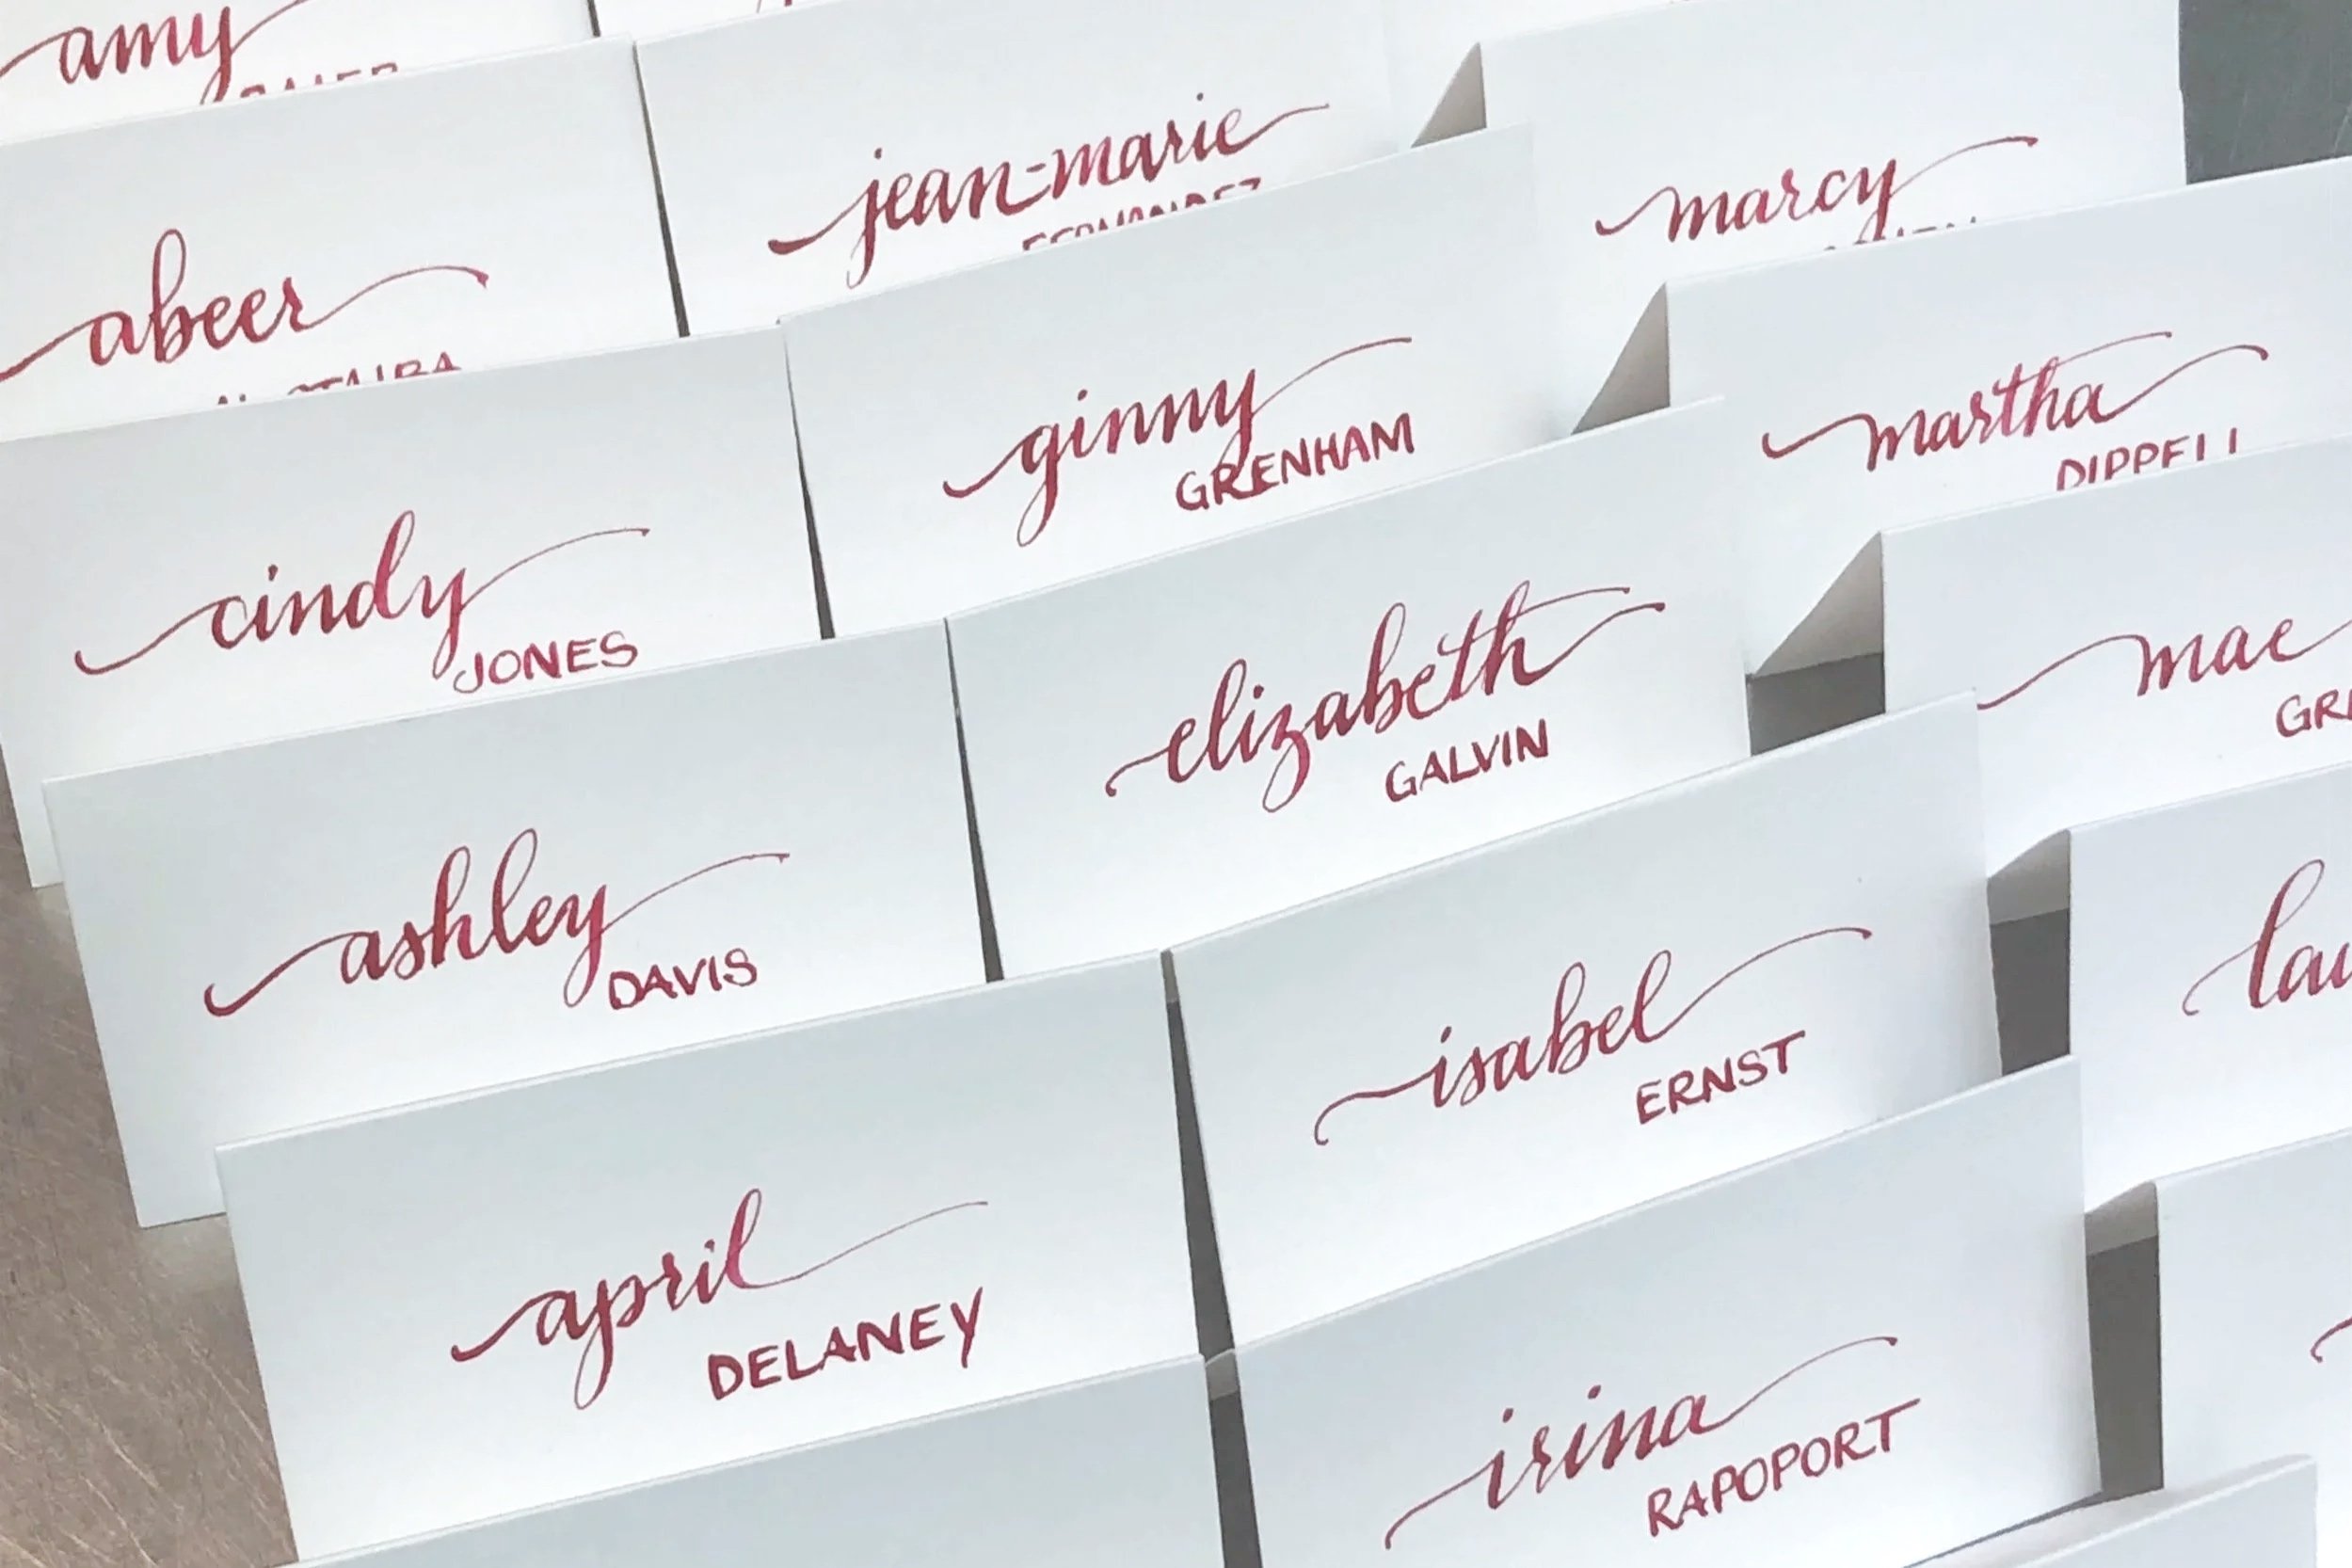 amy
jean-marie
FERNANDEZ
marcy
abeer
ginny
GRENHAM
martha
DIPPELL
cindy
JONES
elizabeth
GALVIN
mae
ashley
DAVIS
isabel
ERNST
april
DELANEY
irina
RAPOPORT